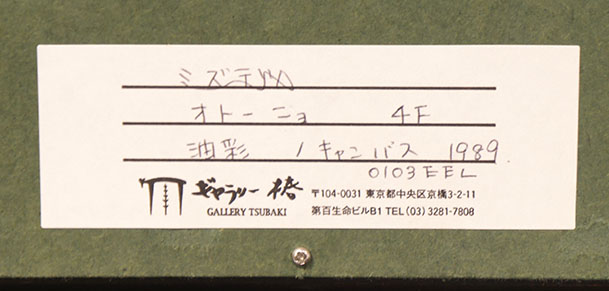 ミズテツオ
オトーニョ 4F
油彩 / キャンバス 1989.
0103EEL
ギャラリー 椿 〒104-0031 東京都中央区京橋3-2-11
GALLERY TSUBAKI 第百生命ビルB1 TEL (03) 3281-7808